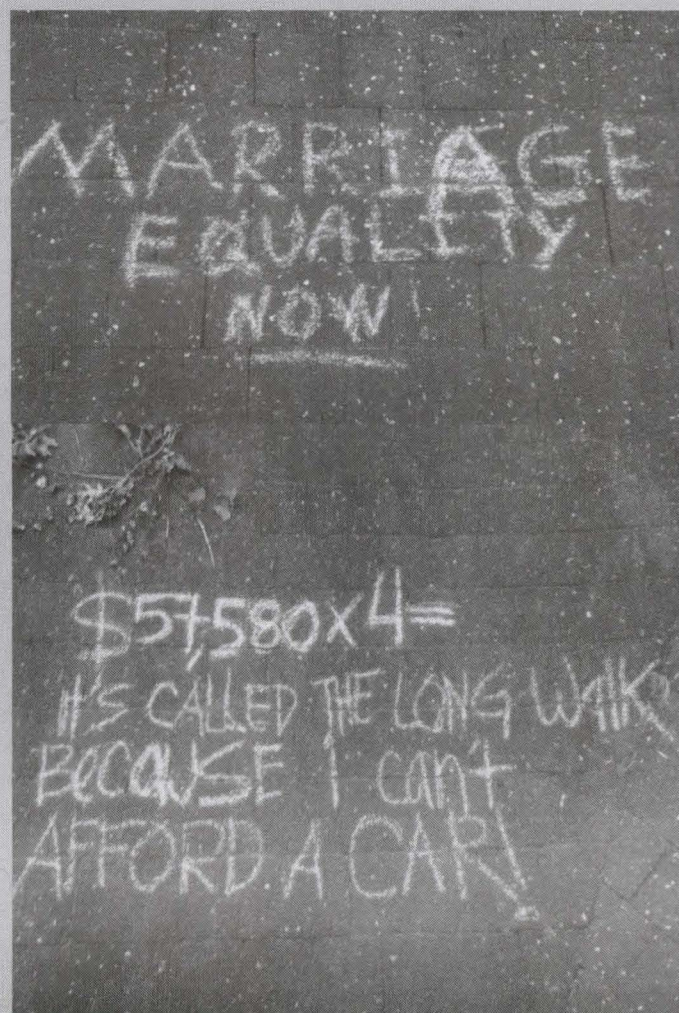 MARRIAGE
EQUALITY
NOW!
$57,580x4=
it'S CALLED THE LONG WAlK
BecAUSE I can't
AFFORD A CAR!